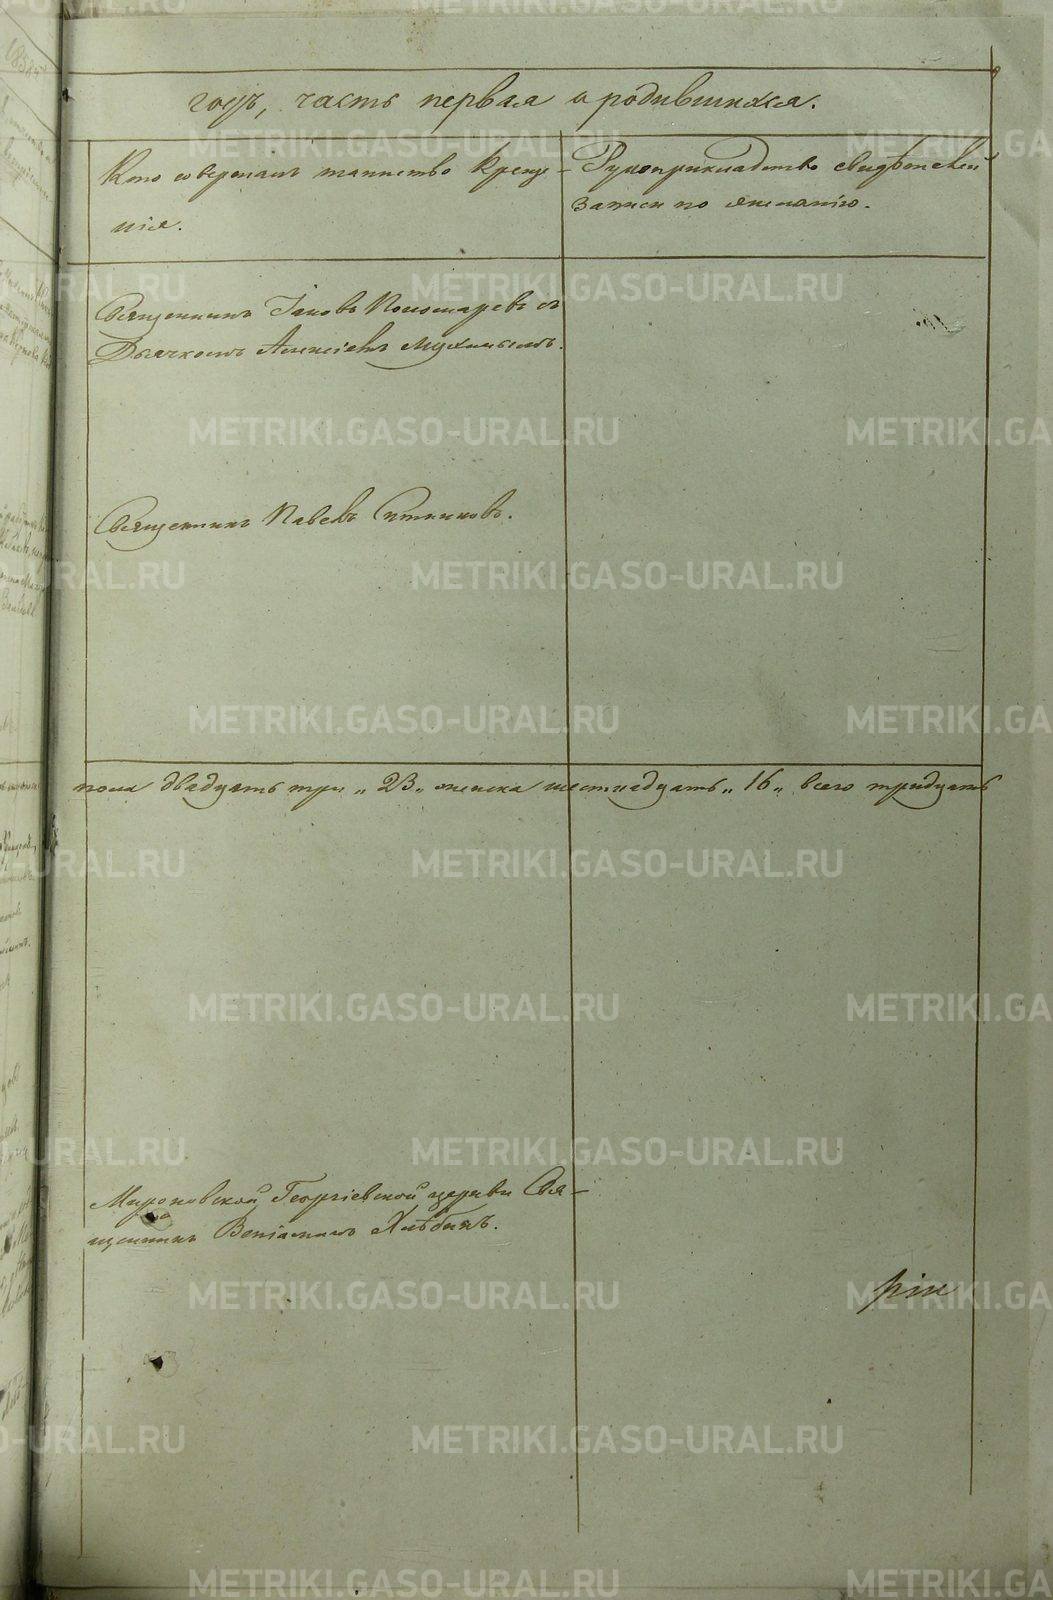 годъ, часть первая о родившихся.
Кто совершалъ таинство креще-
нія.
Рукоприкладство свидѣтелей
записи по желанію.
Священникъ Іаковъ Пономаревъ съ
Дьячкомъ Алексіемъ
Священникъ Павелъ Ситниковъ.
пола двадцать три „23„ женска шестнадцать „16„ всего тридцать
Мироновской Георгіевской церкви Свя-
щенникъ Веніаминъ Хлѣбинъ.
METRIKI.GASO-URAL.RU